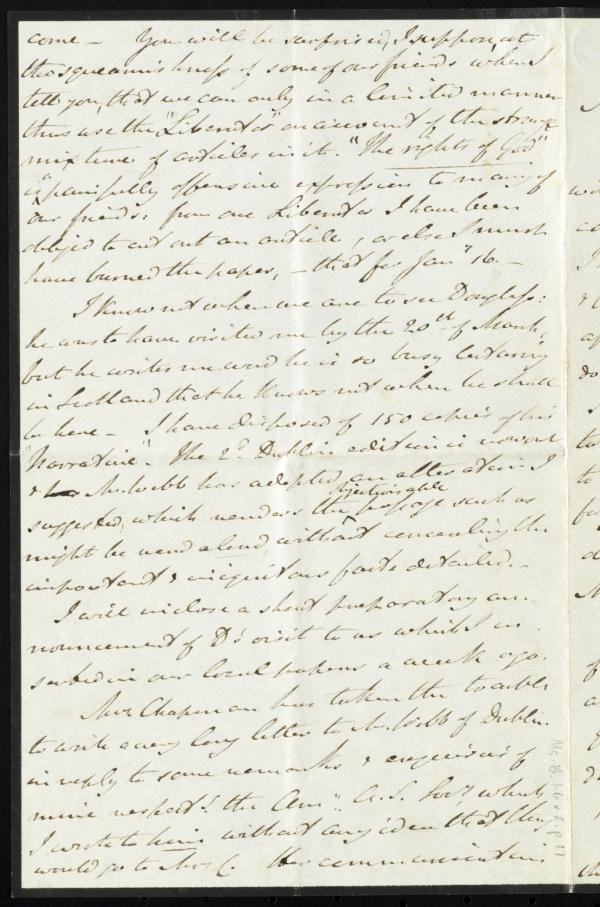 come – You will be surprised, I suppose, at
the squeamishness of some of our friends when I
tell you, that we can only in a limited manner
thus use the "Liberator" on account of the strange
mixture of articles in it. "The rights of God"
is "a painfully offensive expression to many of
our friends: from one Liberator I have been
obliged to cut out an article, or else I must
have burned the paper, – that for Jan'' 16. –
I know not when we are to see Douglass:
he was to have visited me by the 20th of March,
but he writes me word he is so busy lecturing
in Scotland that he knows not when he shall
be here – I have disposed of 150 copies of his
"Narrative". The 2d Dublin edition is now out
& Mr Webb has adopted an alteration I
suggested, which renders the objectionable passage such as
might be read aloud, without concealing the
important & iniquitous facts detailed. –
I will inclose a short preparatory an-
nouncement of D's visit to us which I in-
serted in our local papers a week ago.
Mrs Chapman has taken the trouble
to write a very long letter to Mr Webb of Dublin
in reply to some remarks & enquiries of
mine respectg the Amn A. S. Socy, which
I wrote to him without any idea that they
would go to Mrs C. Her communication is